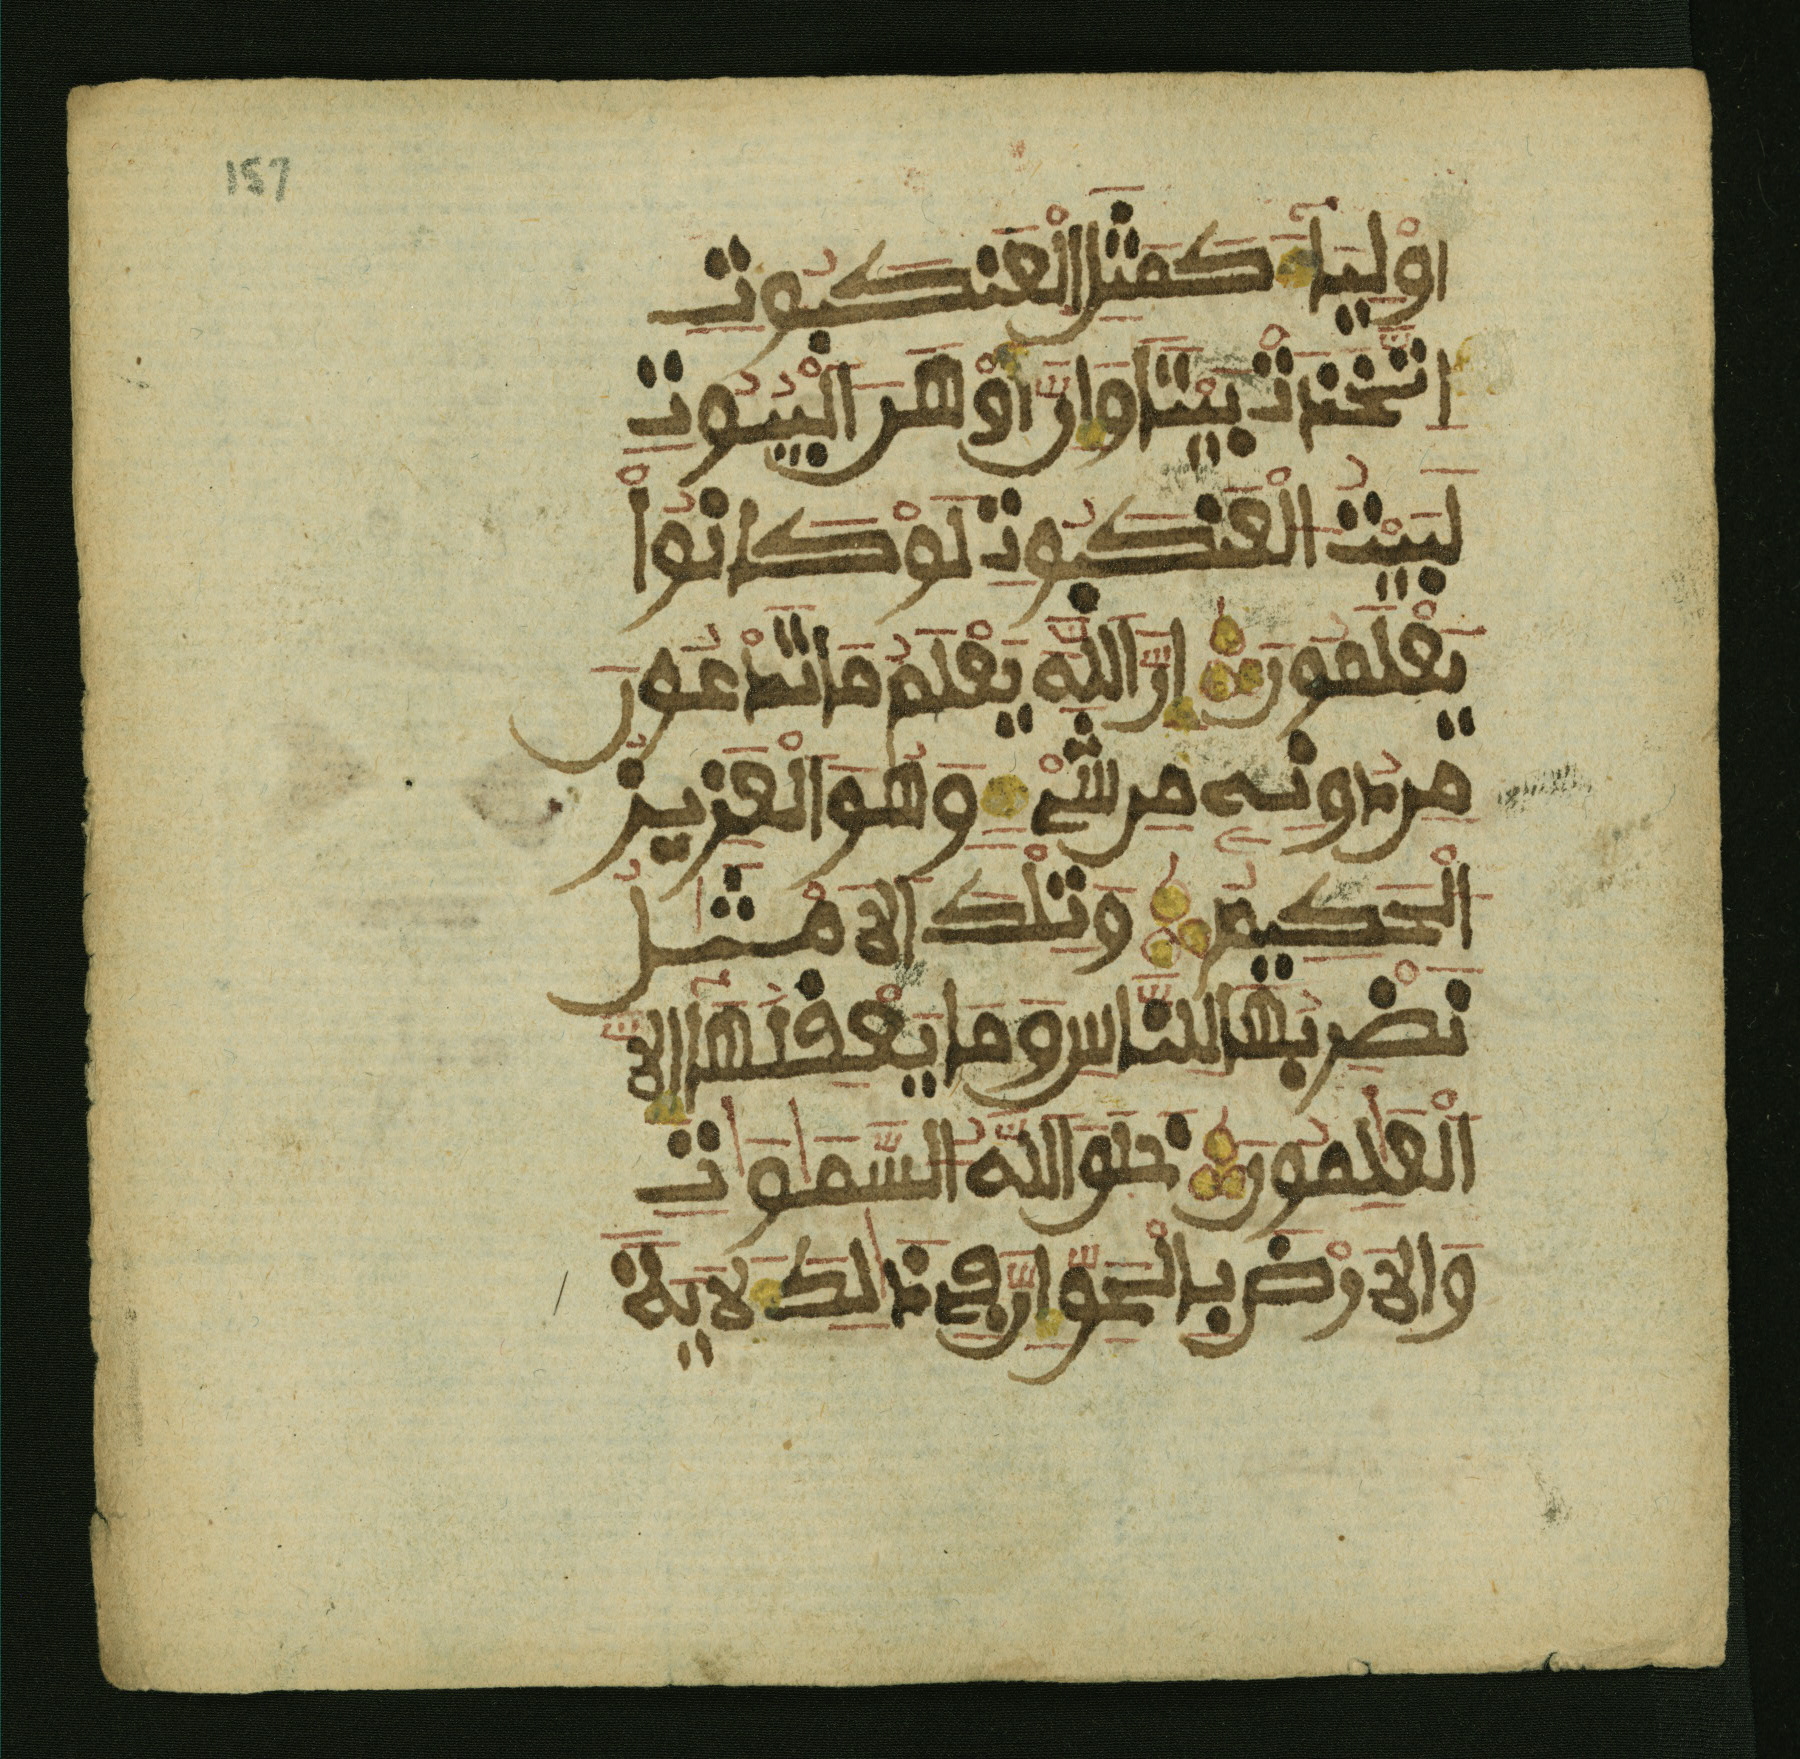 157
اَوْلِيَآءَ كَمَثَلِ الْعَنكَبُوتِ
اِتَّخَذَتْ بَيْتاً وَإِنَّ أَوْهَنَ الْبُيُوتِ
لَبَيْتُ الْعَنكَبُوتِ لَوْ كَانُواْ
يَعْلَمُونَ إِنَّ اللَّهَ يَعْلَمُ مَا تَدْعُونَ
مِن دُونِهِ مِن شَيْءٍ وَهُوَ الْعَزِيزُ
الْحَكِيمُ وَتِلْكَ الَامْثَٰلُ
نَضْرِبُهَا لِلنَّاسِ وَمَا يَعْقِلُهَآ إِلَّا
الْعَٰلِمُونَ خَلَقَ اللَّهُ السَّمَٰوَٰتِ
وَالَارْضَ بِالْحَقِّ إِنَّ فِي ذَٰلِكَ لَأيَةً